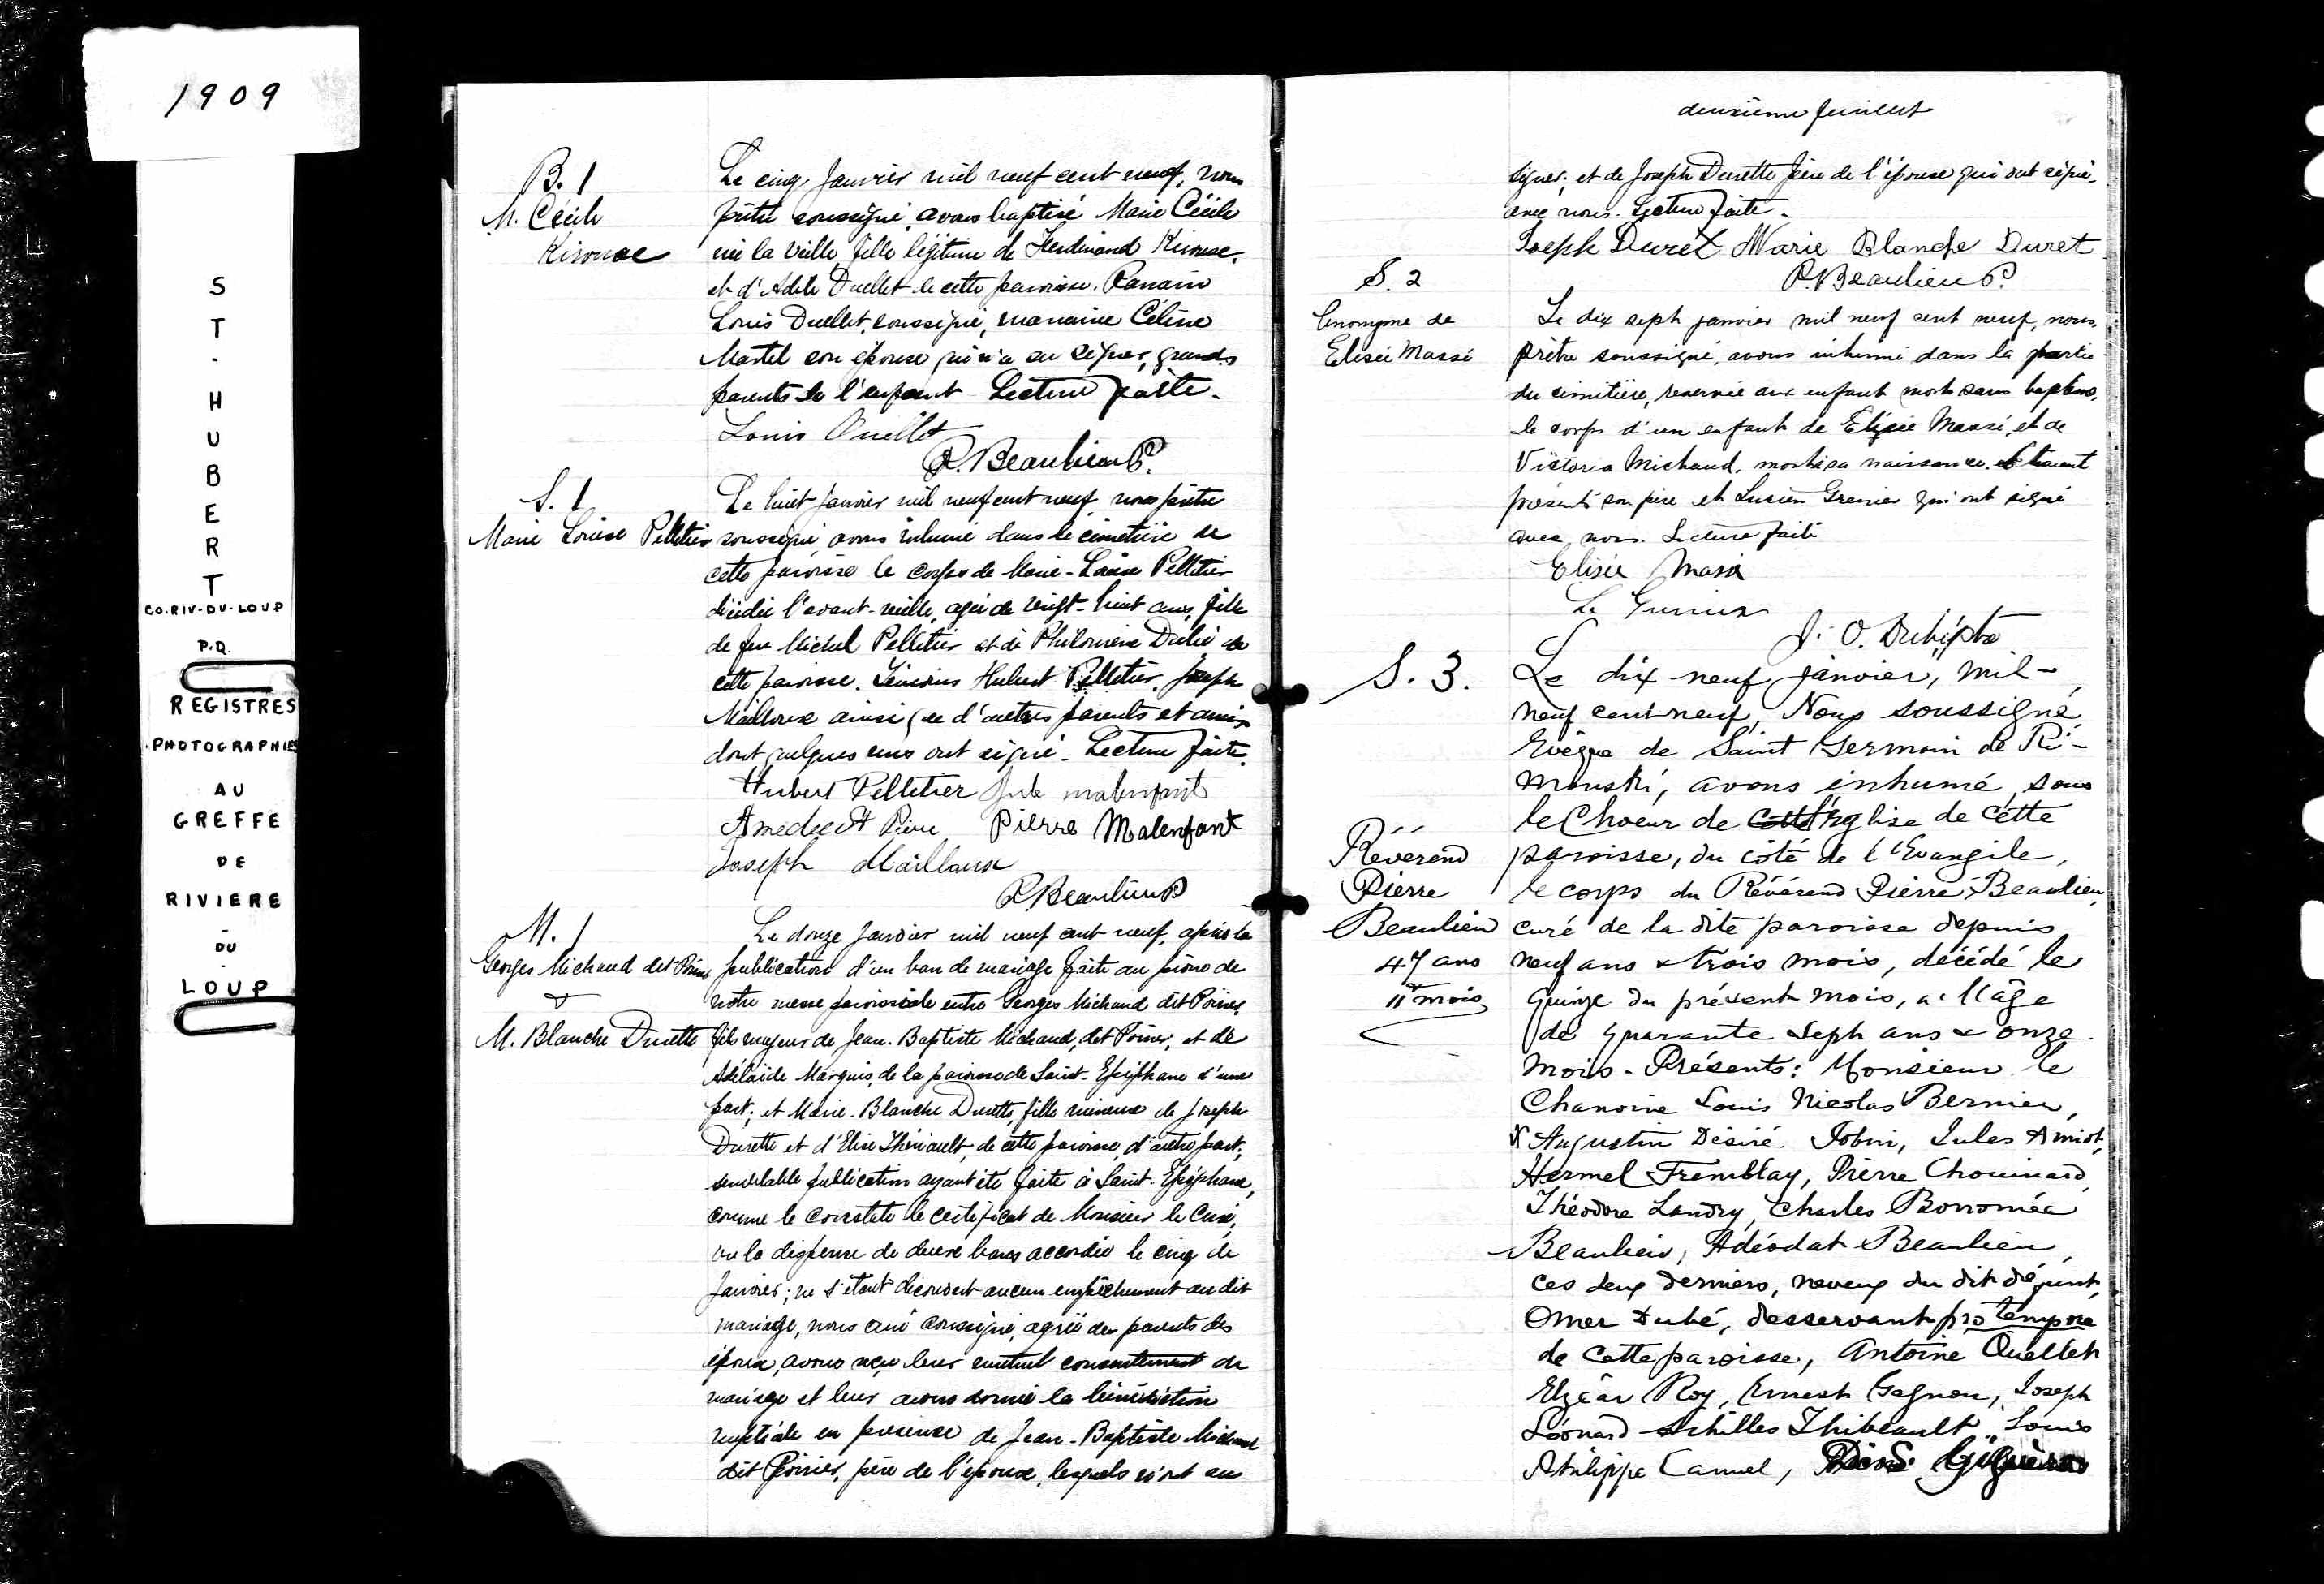 1909
ST. HUBERT
CO. RIV-DU-LOUP
P.Q.
REGISTRES
PHOTOGRAPHIES
AU
GREFFE
DE
RIVIERE
-
DU
-
LOUP
B. 1
M. Cécile
Kirouac
Le cinq Janvier mil neuf cent neuf, nous
prêtre soussigné, avons baptisé Marie Cécile
née la veille, fille légitime de Ferdinand Kirouac
et d'Adèle Ouellet de cette paroisse. Parrain
Louis Ouellet, soussigné, marraine Céline
Martel son épouse qui n'a su signer, grands
parents de l'enfant Lecture faite.
Louis Ouellet
P. Beaulieu P.
S. 1
Marie Louise Pelletier
Le huit Janvier mil neuf cent neuf nous prêtre
soussigné avons inhumé dans le cimetière de
cette paroisse le corps de Marie-Louise Pelletier
décédée l'avant-veille, agée de vingt-huit ans, fille
de feu Michel Pelletier et de Philomène Dubé de
cette paroisse. Témoins Hubert Pelletier, Joseph
Mailloux ainsi que d'autres parents et amis
dont quelques uns ont signé. Lecture faite.
Hubert Pelletier Jule malenfant
Amedee Pierre Malenfant
Joseph Mailloux
P. Beaulieu P.
M. 1
Georges Michaud dit Poirier
&
M. Blanche Durette
Le douze Janvier mil neuf cent neuf, après la
publication d'un ban de mariage faite au prône de
notre messe paroissiale entre Georges Michaud dit Poirier,
fils majeur de Jean-Baptiste Michaud, dit Poirier, et de
Adélaïde Marquis, de la paroisse de Saint-Epiphane d'une
part; et Marie-Blanche Durette, fille mineure de Joseph
Durette et d'Elise Thériault, de cette paroisse, d'autre part;
semblable publication ayant été faite à Saint-Epiphane,
comme le constate le certificat de Monsieur le Curé,
vu la dispense de deux bans accordée le cinq de
Janvier; ne s'étant découvert aucun empêchement au dit
mariage, nous curé soussigné, agréé des parents des
époux, avons reçu leur mutuel consentement de
mariage et leur avons donné la bénédiction
nuptiale en présence de Jean-Baptiste Michaud
dit Poirier, père de l'époux, lesquels n'ont su
deuxième feuillet
signer; et de Joseph Durette père de l'épouse qui ont signé
avec nous. Lecture faite.
Joseph Duret Marie Blanche Duret
P. Beaulieu P.
S. 2
Anonyme de
Elisée Massé
Le dix sept janvier mil neuf cent neuf, nous,
prêtre soussigné, avons inhumé dans la partie
du cimitière, reservée aux enfant morts sans baptême,
le corps d'un enfant de Elisée Massé, et de
Victoria Michaud, mort à sa naissance. Etaient
présents son père et Lucien Grenier qui ont signé
avec nous. Lecture faite
Elisée Massé
L. Grenier
J. O. Dubé, ptre
S. 3.
Révérend
Pierre
Beaulieu
47 ans
&
11 mois
Le dix neuf janvier, mil-
neuf cent-neuf, Nous soussigné,
Evêque de Saint Germain de Ri-
mouski, avons inhumé, sous
le Choeur de cette l'église de cette
paroisse, du côté de l'Evangile,
le corps du Révérend Pierre Beaulieu,
curé de la dite paroisse depuis
neuf ans & trois mois, décédé le
quinze du présent mois, a l'âge
de quarante sept ans & onze
mois - Présents: Monsieur le
Chanoine Louis Nicolas Bernier,
Augustin Désiré Tobin, Jules Amiot,
Hermel Tremblay, Pierre Chouinard,
Théodore Landry, Charles Borromée
Beaulieu, Adéodat Beaulieu,
ces deux derniers, neveux du dit défunt,
Omer Dubé, desservant pro tempore
de cette paroisse, Antoine Ouellet
Elzéar Roy, Ernest Gagnon, Joseph
Léonard Achilles Thibeault, Louis
Philippe Camel,